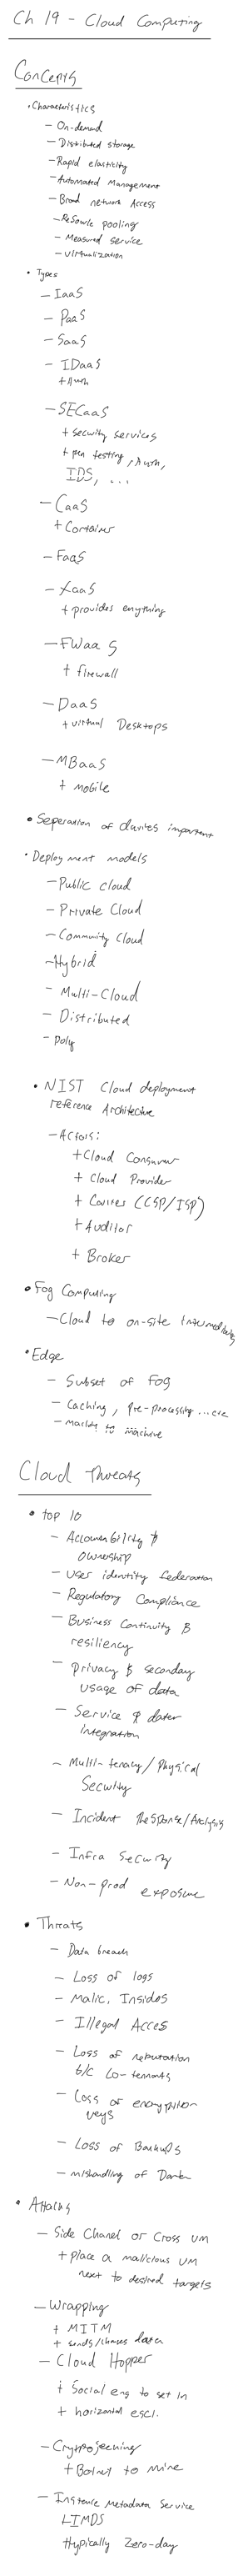 Ch 19 - Cloud Computing
Concepts
• Characteristics
- On-demand
- Distributed storage
- Rapid elasticity
- Automated Management
- Broad network Access
- Resource pooling
- Measured service
- virtualization
• Types
- IaaS
- PaaS
- SaaS
- IDaaS
+ Auth
- SECaaS
+ security services
+ pen testing, Auth,
IDS, ...
- CaaS
+ Container
- FaaS
- XaaS
+ provides anything
- FWaaS
+ firewall
- DaaS
+ virtual Desktops
- MBaaS
+ mobile
• Seperation of duties important
• Deployment models
- Public cloud
- Private Cloud
- Community Cloud
- Hybrid
- Multi-Cloud
- Distributed
- Poly
• NIST Cloud deployment
reference Architecture
- Actors:
+ Cloud Consumer
+ Cloud Provider
+ Carrier (CSP/ISP)
+ Auditor
+ Broker
• Fog Computing
- Cloud to on-site
• Edge
- Subset of Fog
- Caching, pre-processing ... etc
- machine to machine
Cloud Threats
• top 10
- Accountability &
ownership
- User identity federation
- Regulatory Compliance
- Business Continuity &
resiliency
- privacy & seconday
usage of data
- Service & data
integration
- Multi-tenacy / Physical
Security
- Incident Response/Analysis
- Infra Security
- Non-prod exposure
• Threats
- Data breach
- Loss of logs
- Malic. Insides
- Illegal Acces
- Loss of reputation
b/c Co-tennants
- Loss of encryption
keys
- Loss of Backups
- mishandling of Data
• Attacks
- Side Chanel or Cross VM
+ place a malicious VM
next to desired targets
- Wrapping
+ MITM
+ sends/changes data
- Cloud Hopper
+ Social eng to get in
+ horizontal escl.
- Cryptojacking
+ Botnet to mine
- Instance Metadata Service
LIMDS
typically Zero-day